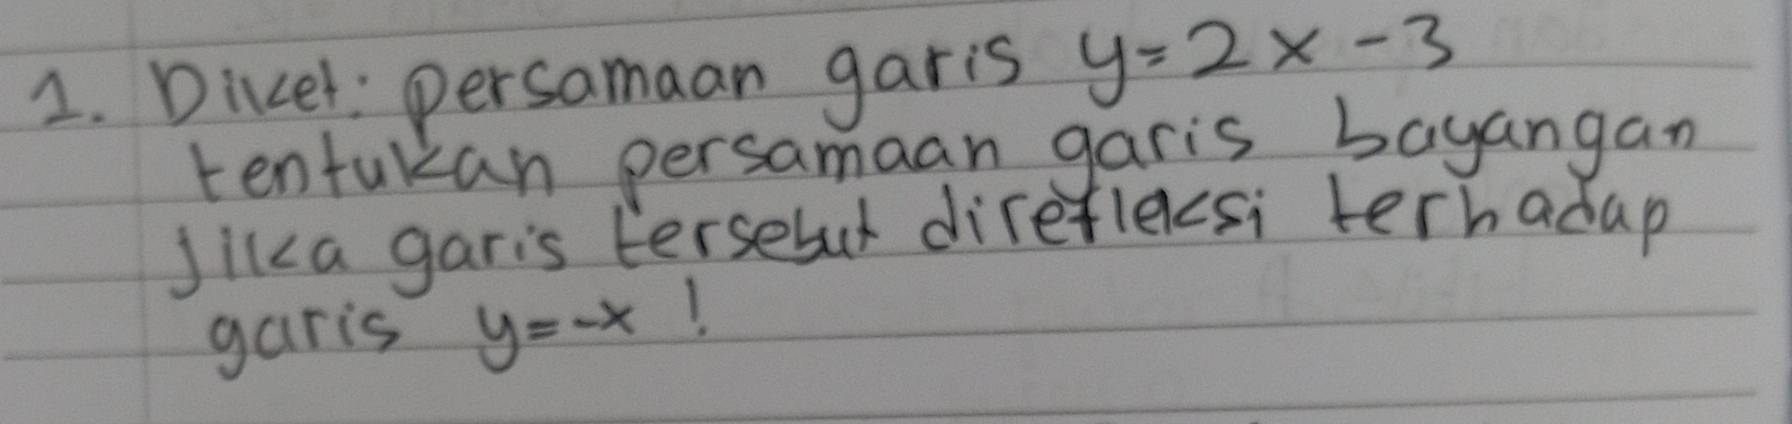 1. Diket: persamaan garis y=2x-3
tentukan persamaan garis bayangan
jika garis tersebut direfleksi terhadap
garis y=-x !